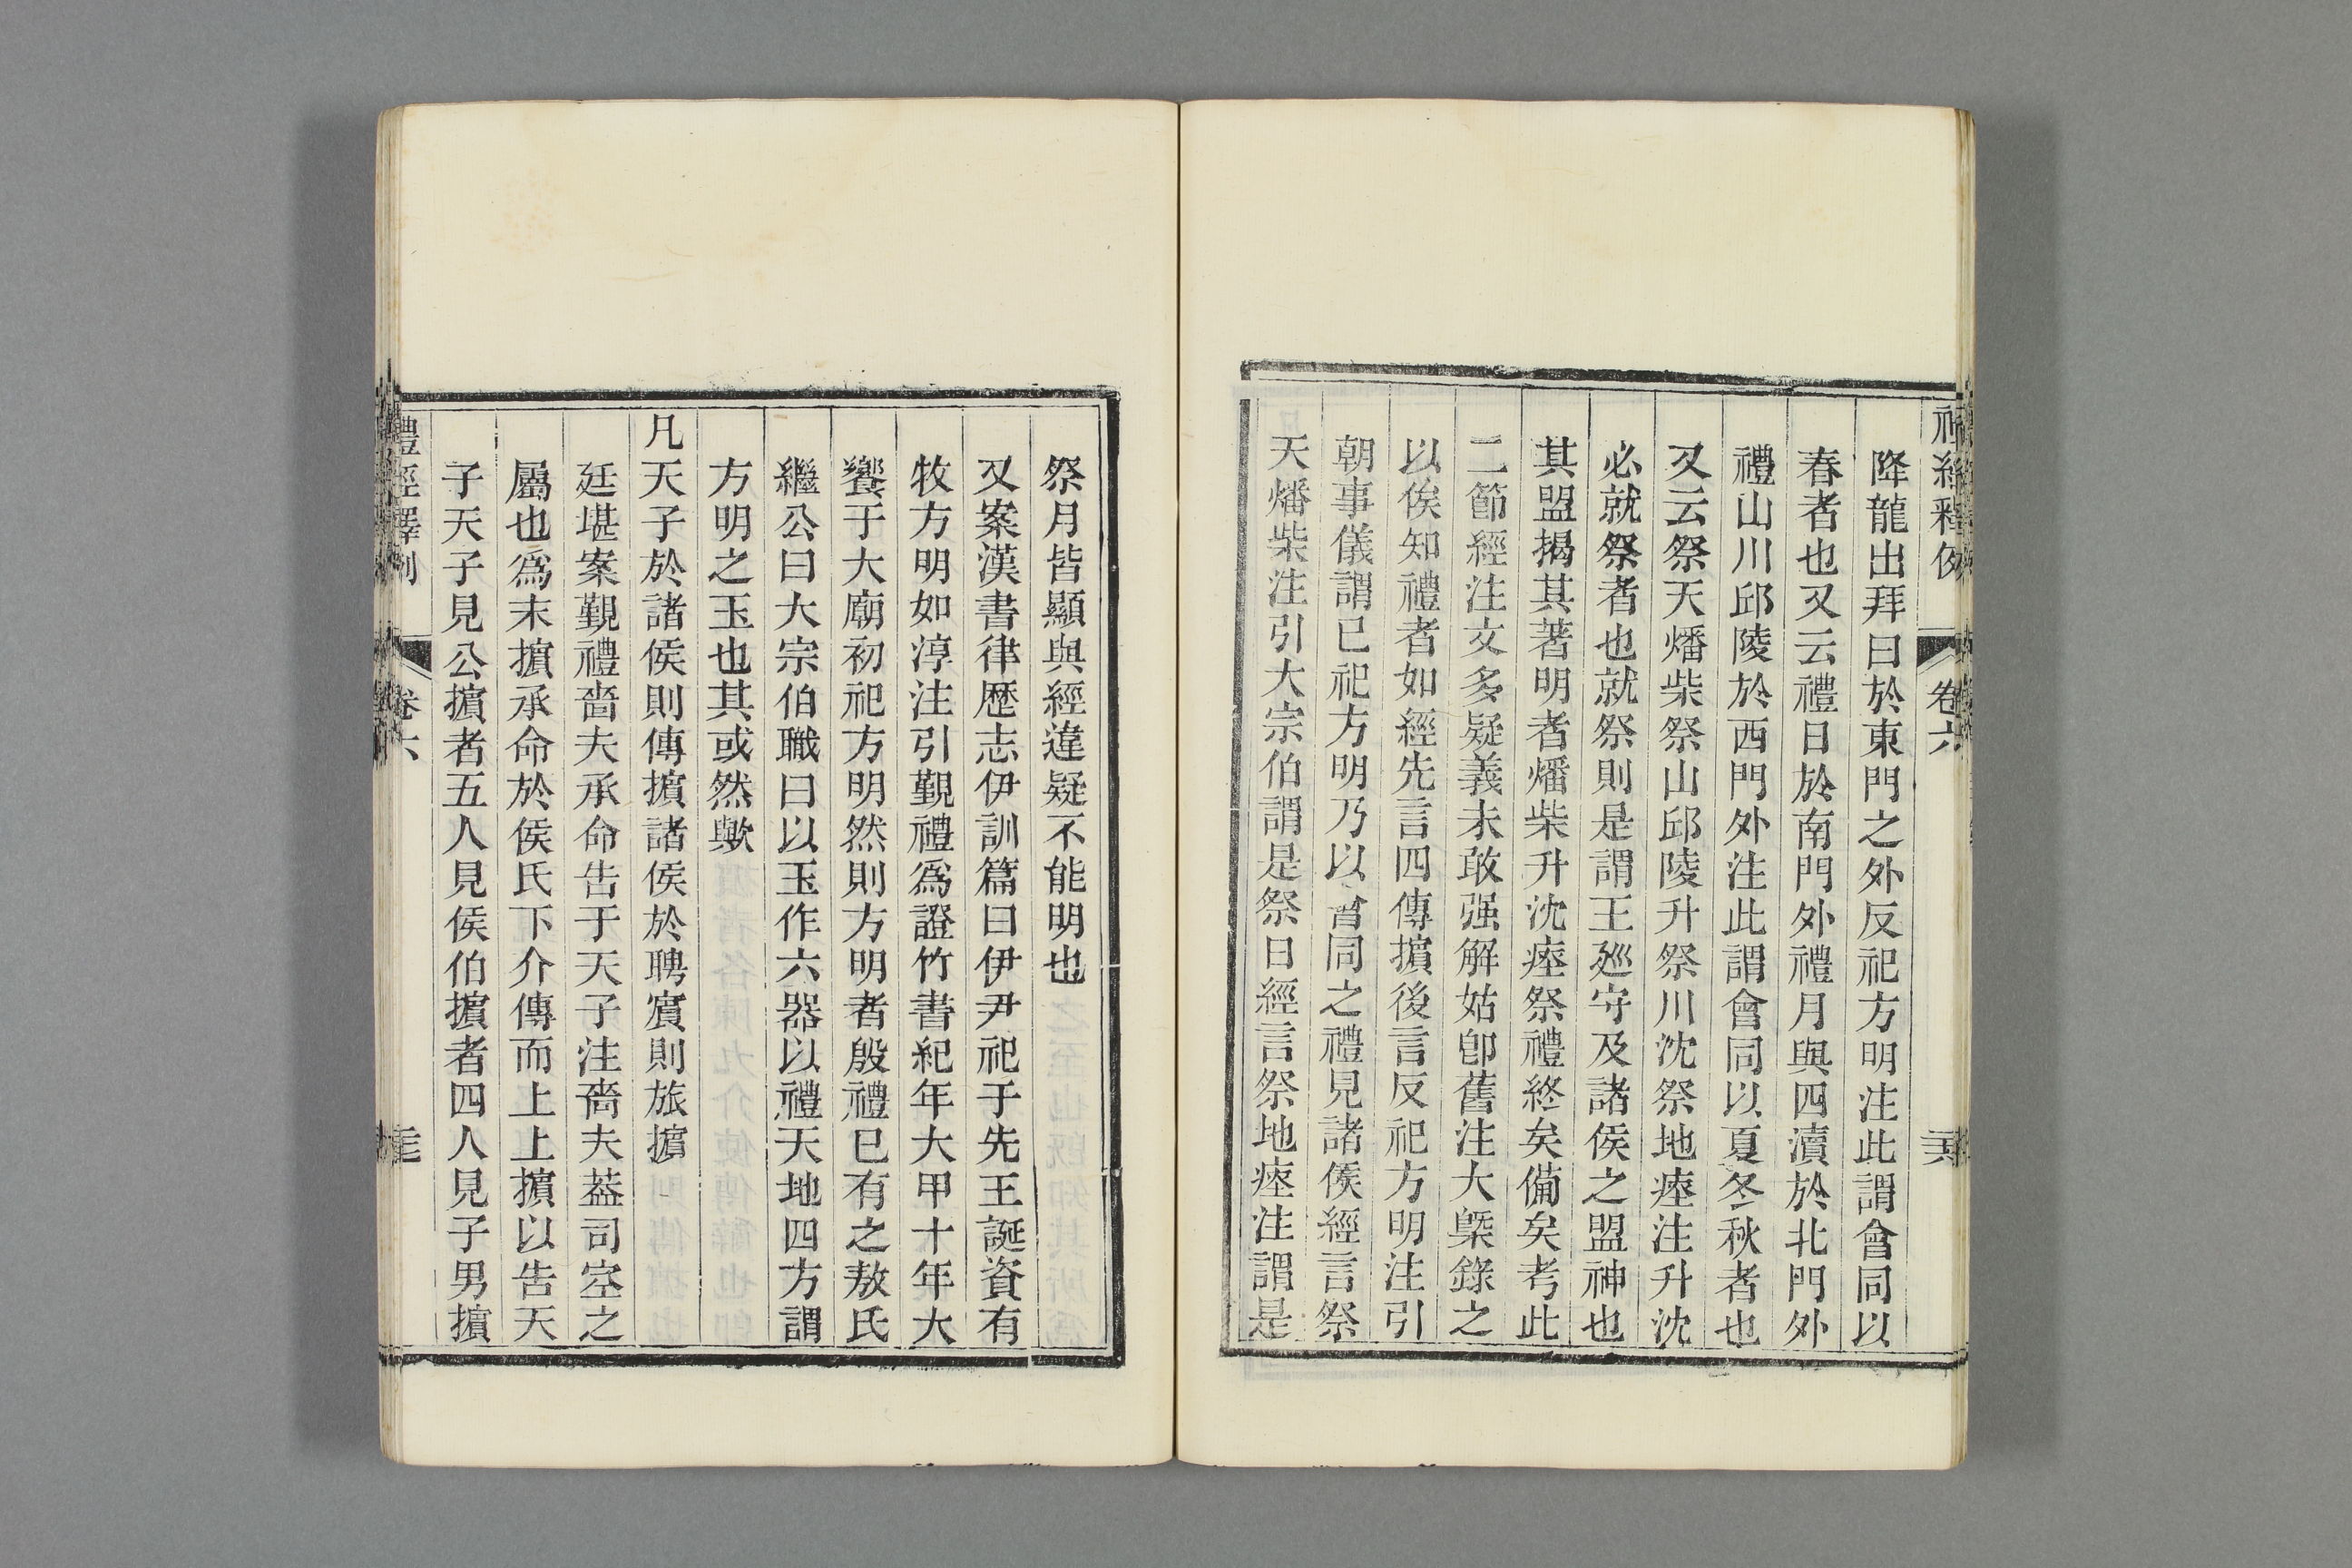 禮經釋例 卷六
降龍出拜曰於東門之外反祀方明注此謂會同以
春者也又云禮日於南門外禮月與四瀆於北門外
禮山川邱陵於西門外注此謂會同以夏冬秋者也
又云祭天燔柴祭山邱陵升祭川沈祭地瘞注升沈
必就祭者也就祭則是謂王廵守及諸侯之盟神也
其盟揭其著明者燔柴升沈瘞祭禮終矣備矣考此
二節經注文多疑義未敢强解姑卽舊注大槩錄之
以俟知禮者如經先言四傳擯後言反祀方明注引
朝事儀謂已祀方明乃以會同之禮見諸侯經言祭
天燔柴注引大宗伯謂是祭日經言祭地瘞注謂是
祭月皆顯與經違疑不能明也
又案漢書律歷志伊訓篇曰伊尹祀于先王誕資有
牧方明如淳注引覲禮爲證竹書紀年大甲十年大
饗于大廟初祀方明然則方明者殷禮已有之敖氏
繼公曰大宗伯職曰以玉作六器以禮天地四方謂
方明之玉也其或然歟
凡天子於諸侯則傳擯諸侯於聘賓則旅擯
廷堪案覲禮嗇夫承命告于天子注嗇夫葢司空之
屬也爲末擯承命於侯氏下介傳而上上擯以告天
子天子見公擯者五人見侯伯擯者四人見子男擯
禮經釋例 卷六